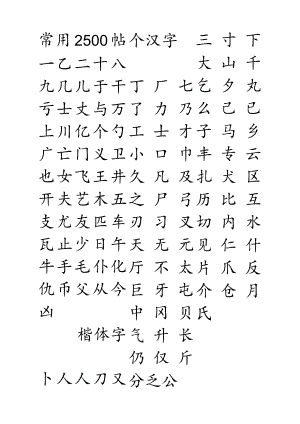 常用2500帖个汉字 三 寸 下
一乙二十八 大 山 千
九几儿于干丁 厂 七 乞 夕 丸
亏士丈与万了 力 乃 么 己 已
上川亿个勺工 士 才 子 马 乡
广亡门义卫小 口 巾 丰 专 云
也女飞王井久 凡 及 扎 犬 区
开夫艺木五之 尸 弓 历 比 互
支尤友匹车刃 习 叉 切 内 水
瓦止少日午天 无 元 见 仁 什
牛手毛仆化厅 不 太 片 爪 反
仇币父从今巨 牙 屯 介 仓 月
凶 中 冈 贝 氏
楷体字气 升 长
仍 仅 斤
卜人人刀又分乏公